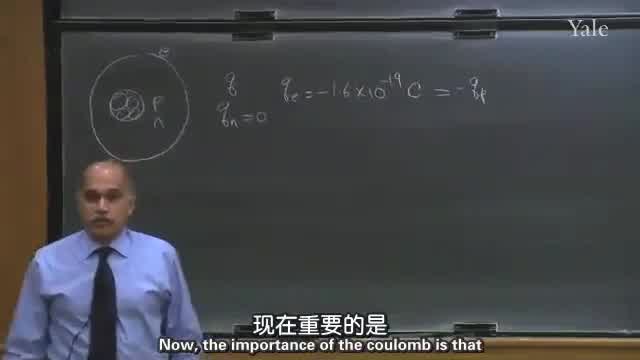 Yale
e
q
q_e = -1.6 × 10^-19 C = -q_p
p
n
q_n = 0
现在重要的是
Now, the importance of the coulomb is that